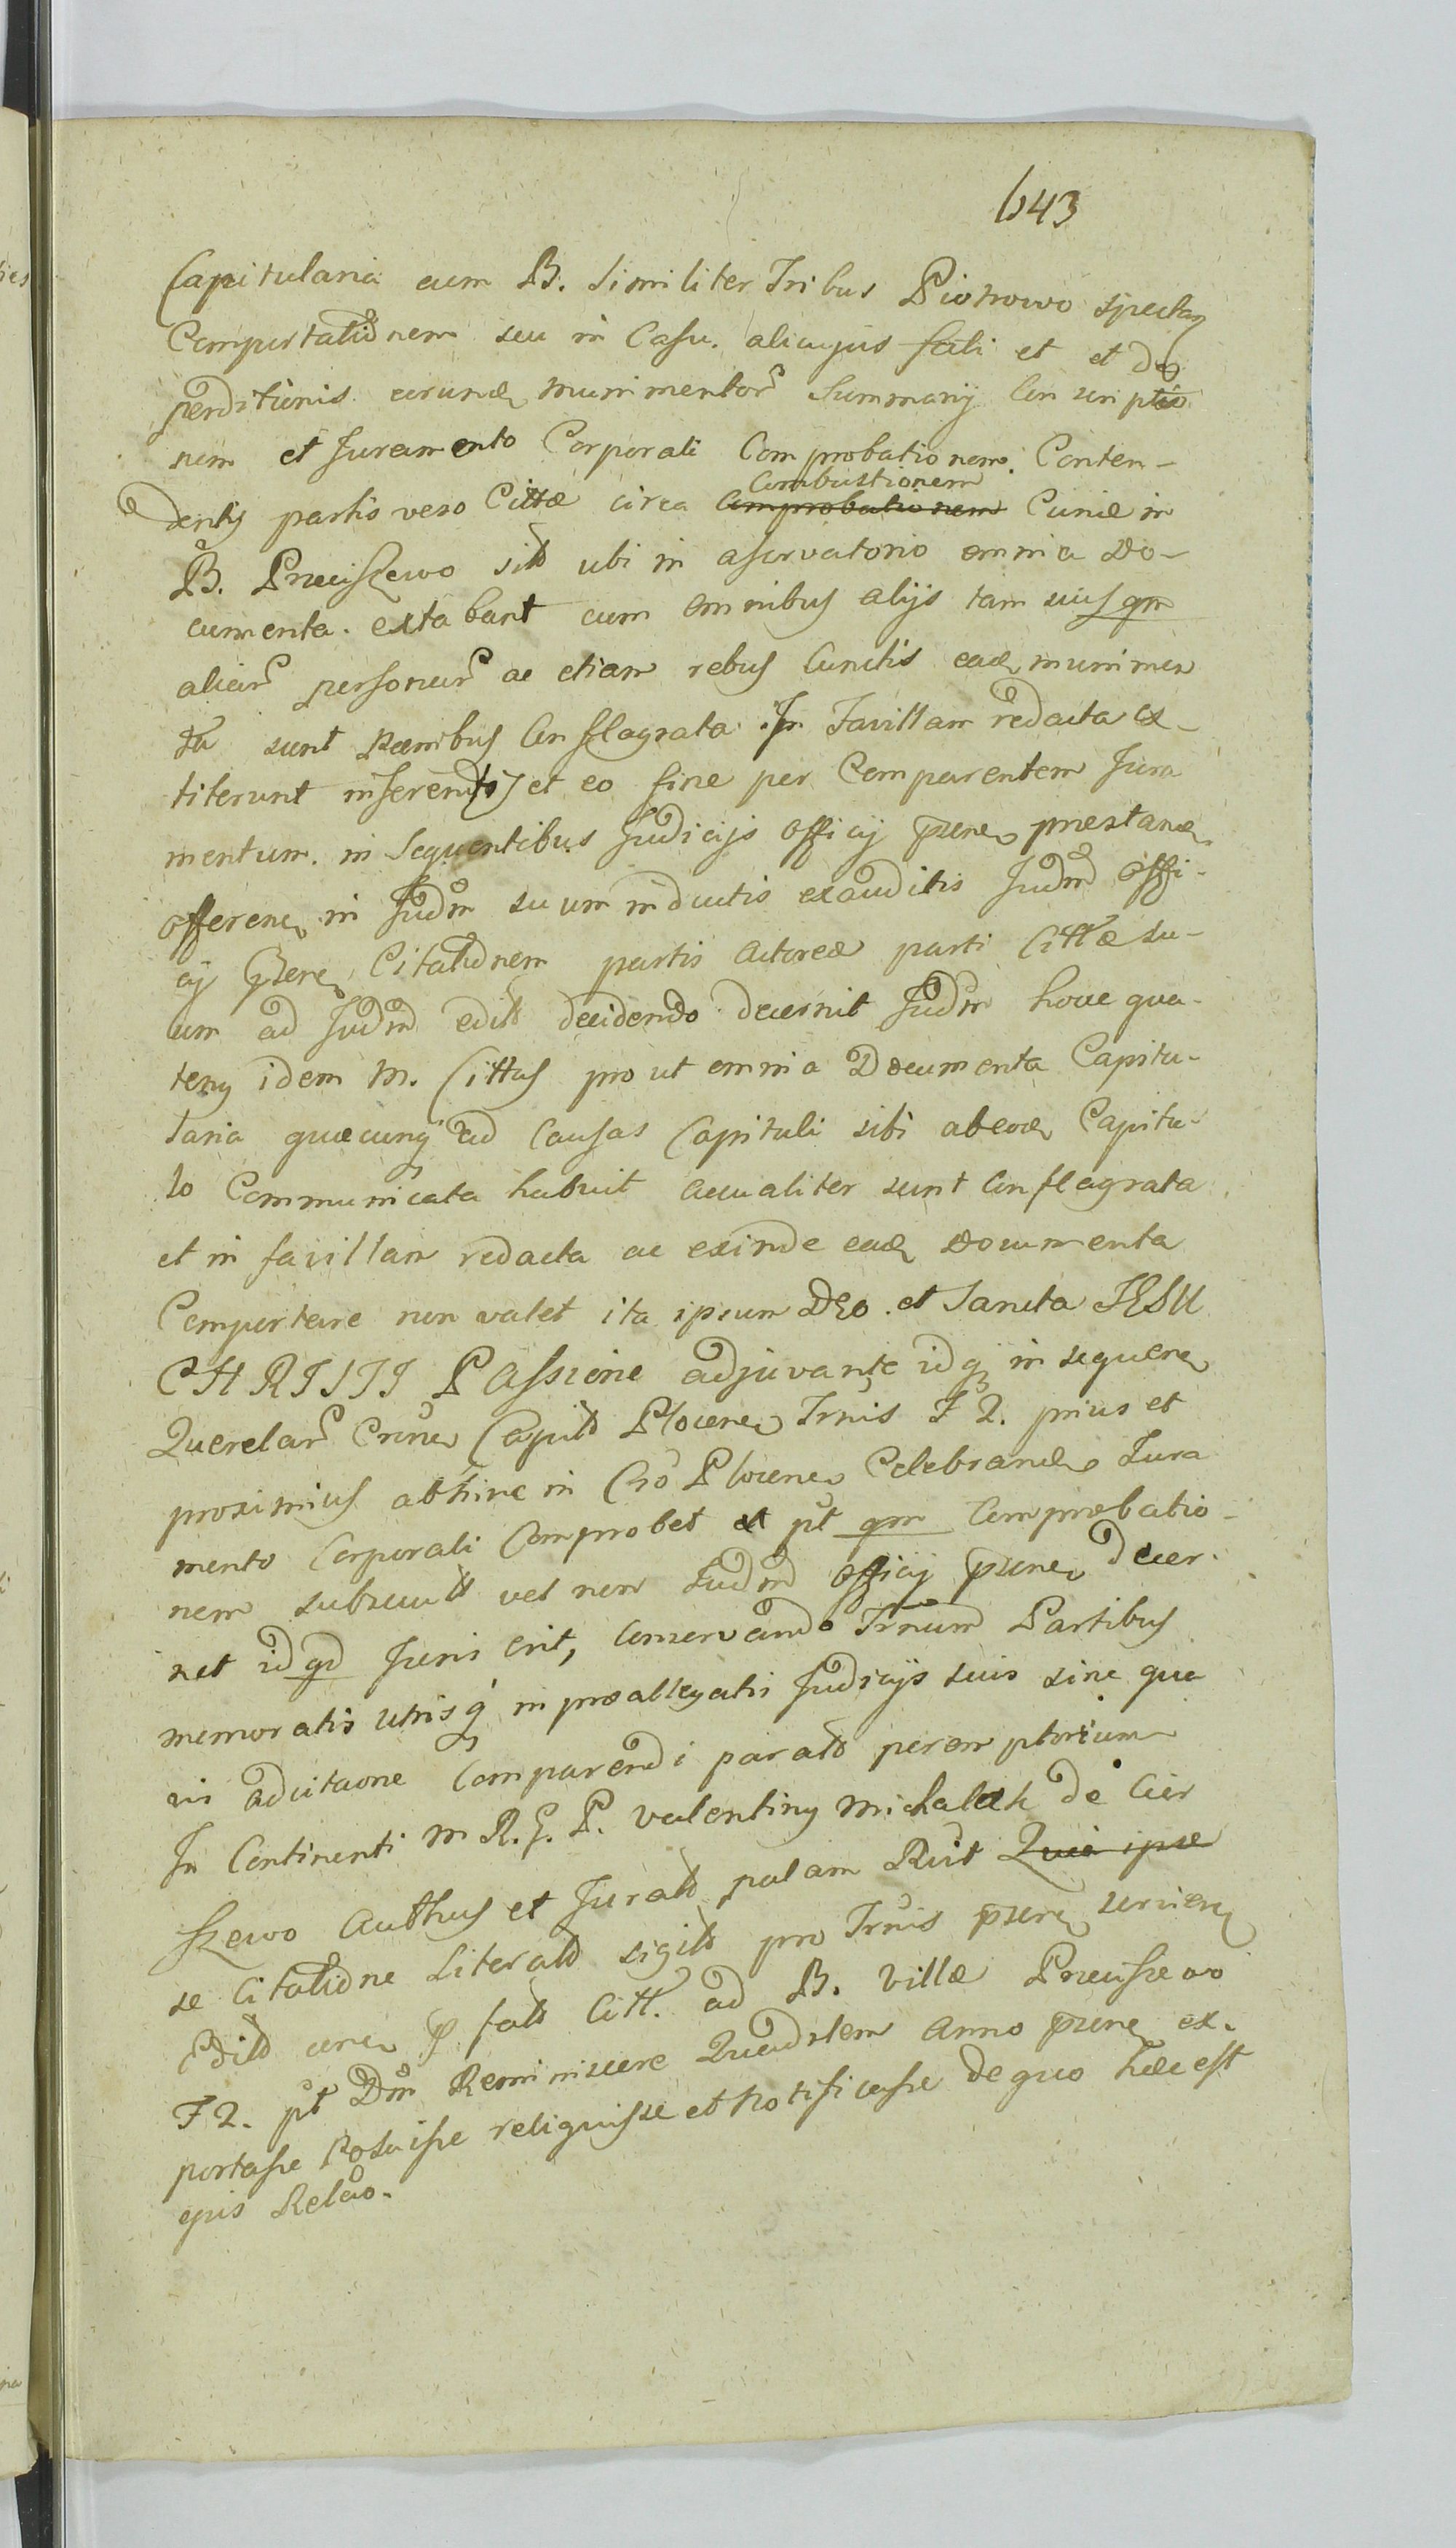 643
Capitularia cum B. Similiter Tribus Piotrowo spectan
Comportationem seu in Casu alicujus fati et et de
perditionis eorund munimentor Summarij Conscriptio
nem et Juramento Corporali Comprobationem Conten-
dentis partis vero Cittae circa Combustionem Comprobationem Curiae in
B. Preciszewo sit ubi in aservatorio omnia Do-
cumenta extabant cum omnibus alijs tam suis qm
aliar personar ac etiam rebus Cunctis ead munimen
ta sunt Conflagrata In Favillam redacta ex-
titerunt inferentis et eo fine per Comparentem Jura
mentum in Sequentibus Judicijs officij praestand
offeren in Judm suum inductis exauditis Judm Offi-
cij Citationem partis Actoreae parti Cittae su-
um ad Judm edit decidendo decernit Judm hocce qua-
tenus idem M. Cittus prout omnia Documenta Capitu-
laria quaecunq ad Causas Capituli sibi ab eod Capitu-
lo Communicata habuit acualiter sunt Conflagrata
et in favillam redacta ac exinde ead Documenta
Comportare non valet ita ipsum DEo et Sancta IESU
CHRISTI PAssione adjuvante idq in sequen
Querelar Crune Capit Plocen Trnis F2. prius et
proximius abhinc in Cro Plocen Celebrand Jura
mento Corporali Comprobet et pt qm Comprobatio-
nem subsecut vel non Judm Officij decer-
net id qd Juris erit, Conservando Trnum Partibus
memoratis utrisq in praeallegatis Judicijs suis sine qua
vis adcitaone Comparendi parato peremptorium
In Continenti M R. G. P. Valentinus Michalak de Cier
szewo Authus et Jurat palam Rcit Quia ipse
se Citatione Literat sigilt pro Trnis servien
Edit p fat Citt. ad B. Villae Preciszewo
F2. pt Dm Reminiscere Quadrlem Anno ex-
portasse Posuisse reliquisse et Notificasse de quo haec est
ejus Relao.